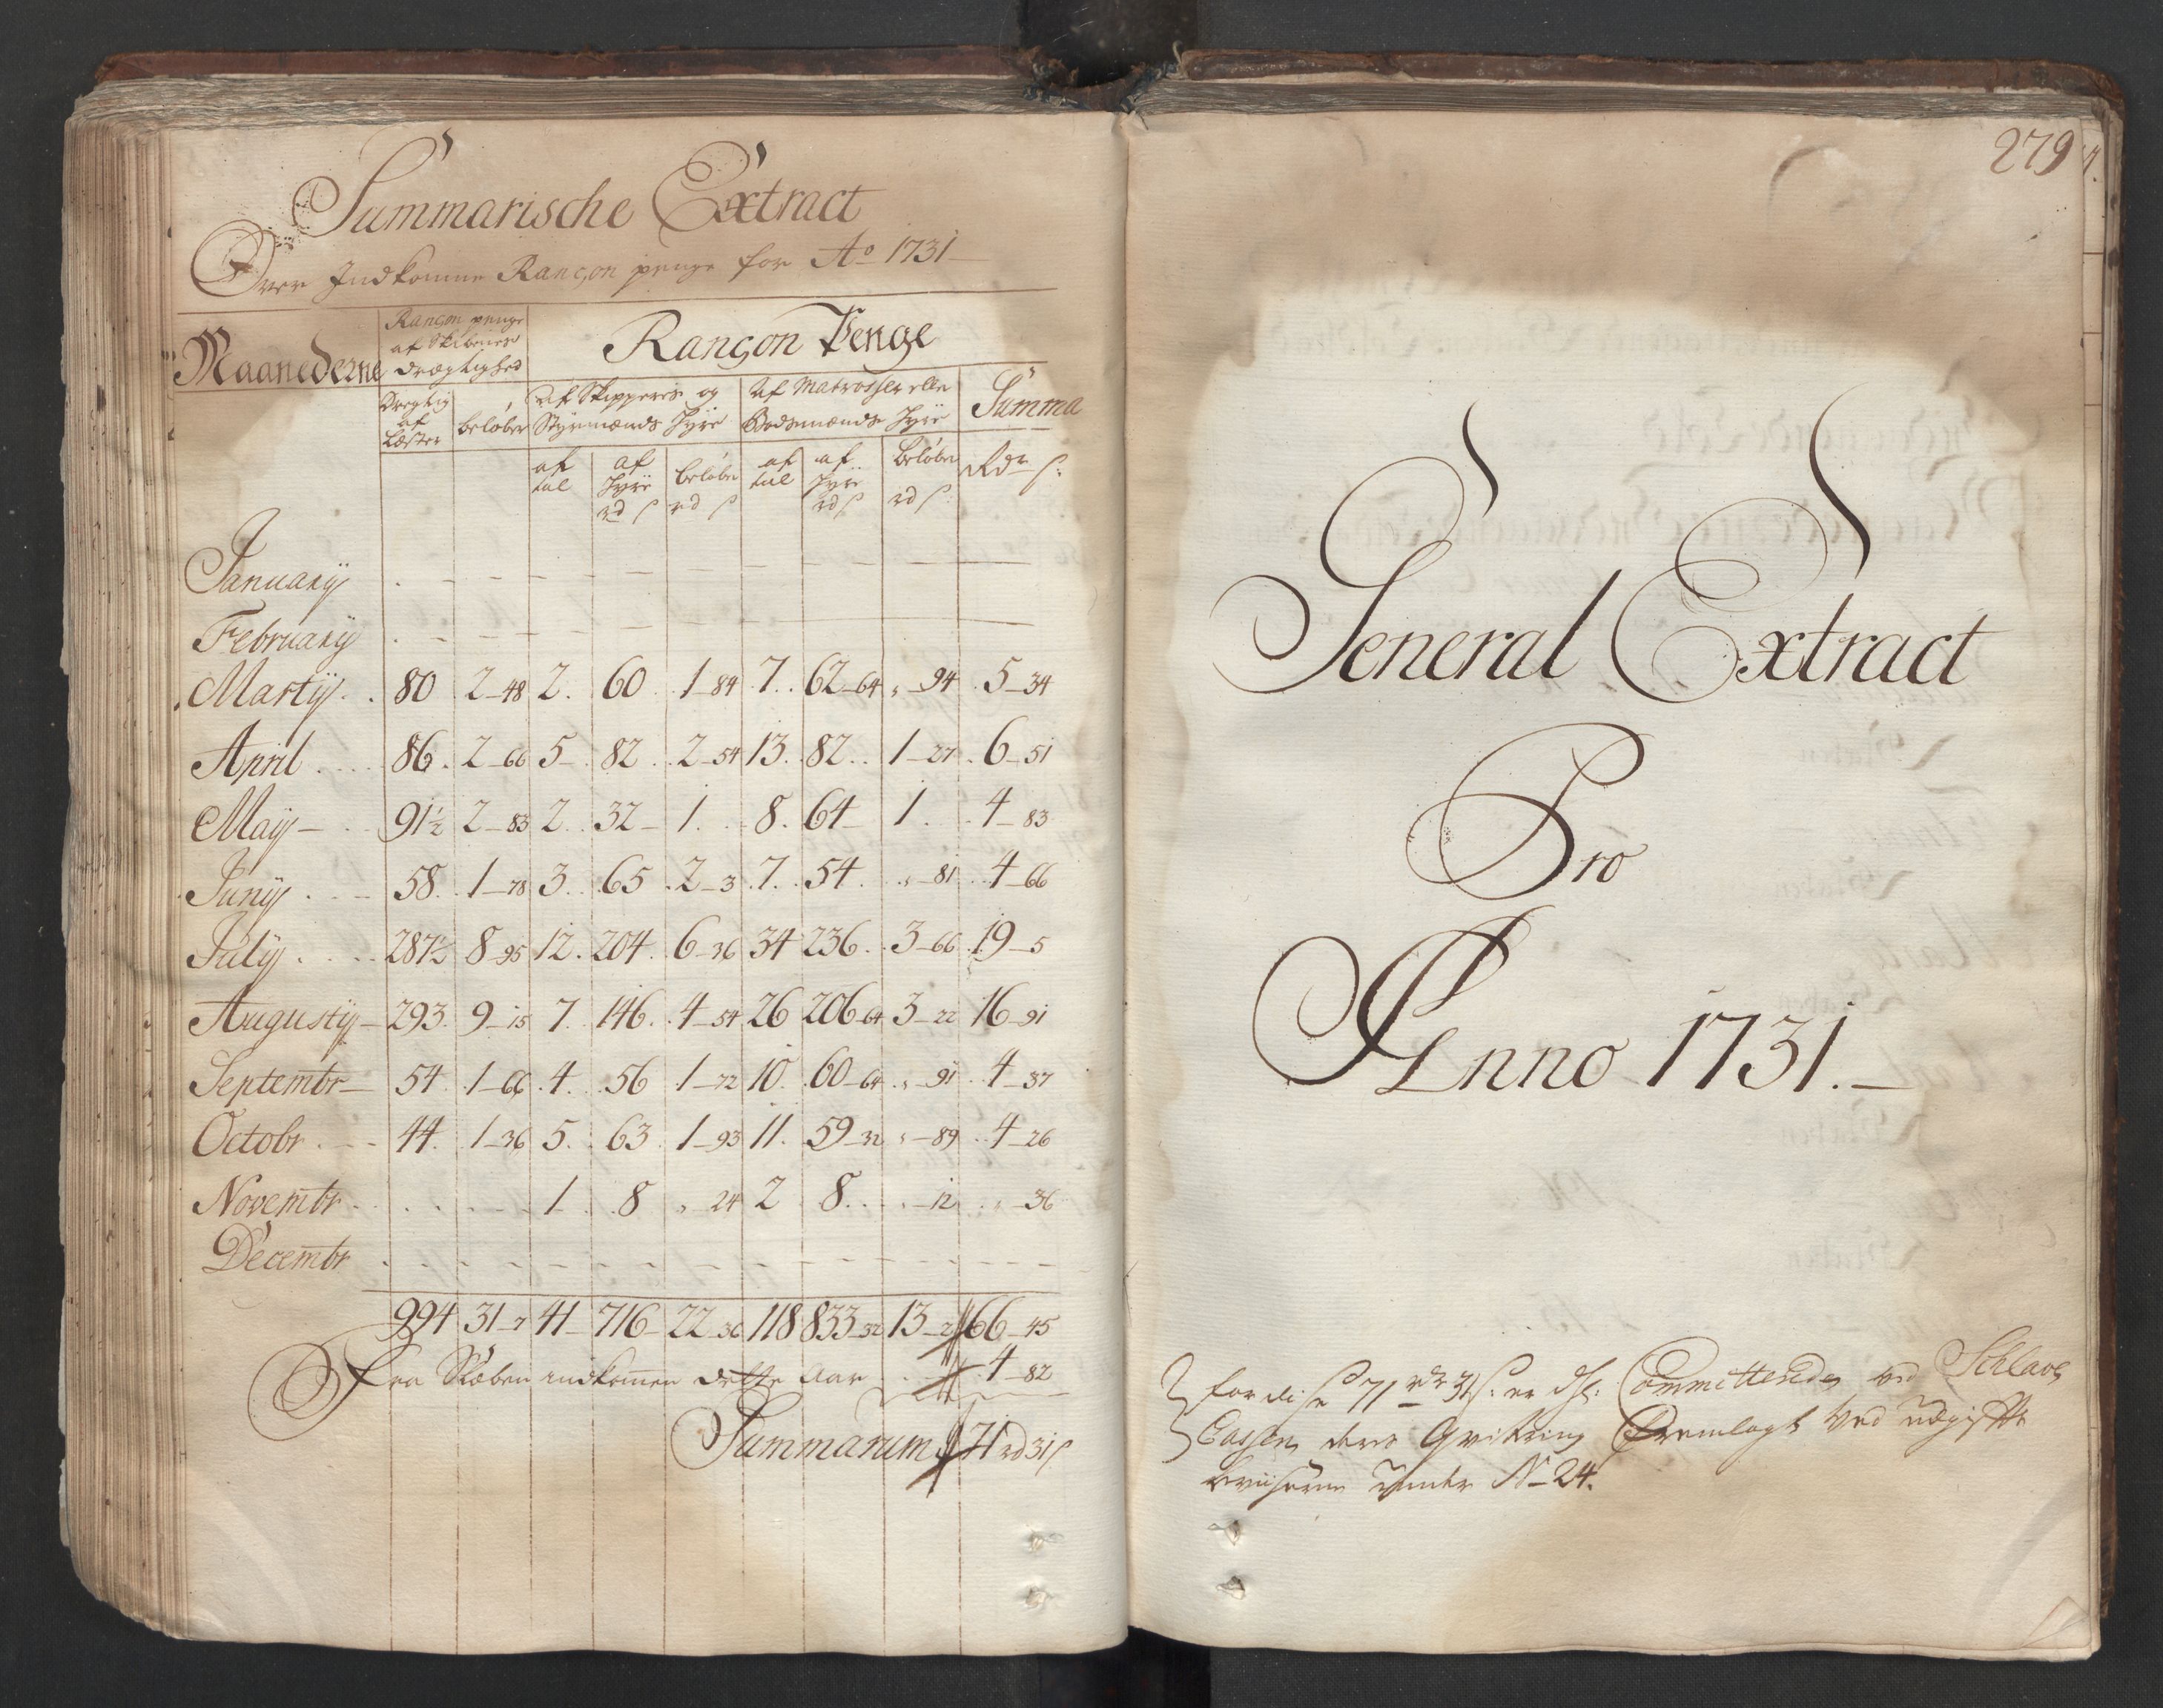 Summarische Extract
Over Indkomne Rançon penge for Ao 1731
Maanederne
Rançon penge
af Skibenes
drægtighed
Rançon Penge
Dregtig
af
Læster
beløber
Af Skippere og
Styrmænds Hyre
Af Matrosser elle
Baadsmænds Hyre
Summa
af
tal
af
Hyre
rd s
beløber
rd s
af
tal
af
Hyre
rd s
beløber
rd s
Rdr s:
January . - - - - - - - - -
February . - - - - - - - - -
Marty . . 80 2-48 2. 60 1-84 7. 62-64 „-94 5-34
April . . . 86. 2-66 5- 82 2-54 13. 82. 1-27 6-51
May - . . 91½ 2-83 2. 32- 1. 8. 64- 1. 4-83
Juny . . - 58. 1-78 3. 65 2-3 7. 54. „-81 4-66
July . . . 287½ 8-95 12. 204. 6-36 34 236. 3-66 19-5
Augusty - 293. 9-15 7. 146. 4-54 26 206-64 3-22 16-91
Septembr - 54. 1-66 4. 56 1-72 10. 60-64 „-91 4-37
Octobr . - - 44. 1-36 5. 63 1-93 11. 59-32 „-89 4-26
Novembr . . . . 1 8 „-24 2 8. „-12 „-36
Decembr . - - - - - - - - -
994 31-7 41- 716- 22-36 118 833-32 13-2 66-45
Fra Skoben indkommen dette Aar . . 4-82
Summarum 71 rd 31 s
279
General Extract
Pro
Anno 1731.-
for disse 71 rdr 31 s: er dhl: Committerede ved Schlave
Cassen deres Qvitering fremlagt ved udgiffts
beviiserne under No 24.